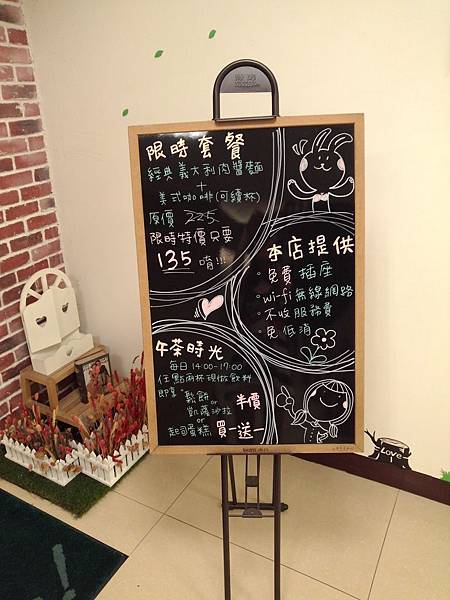 限時套餐
經典義大利肉醬麵
+
美式咖啡(可續杯)
原價 225
限時特價只要
135 唷!!!
本店提供
·免費插座
·wi-fi無線網路
·不收服務費
·免低消
午茶時光
每日 14:00-17:00
任點兩杯現做飲料
即享 鬆餅 半價
or
凱薩沙拉
or
起司蛋糕 買一送一
Love